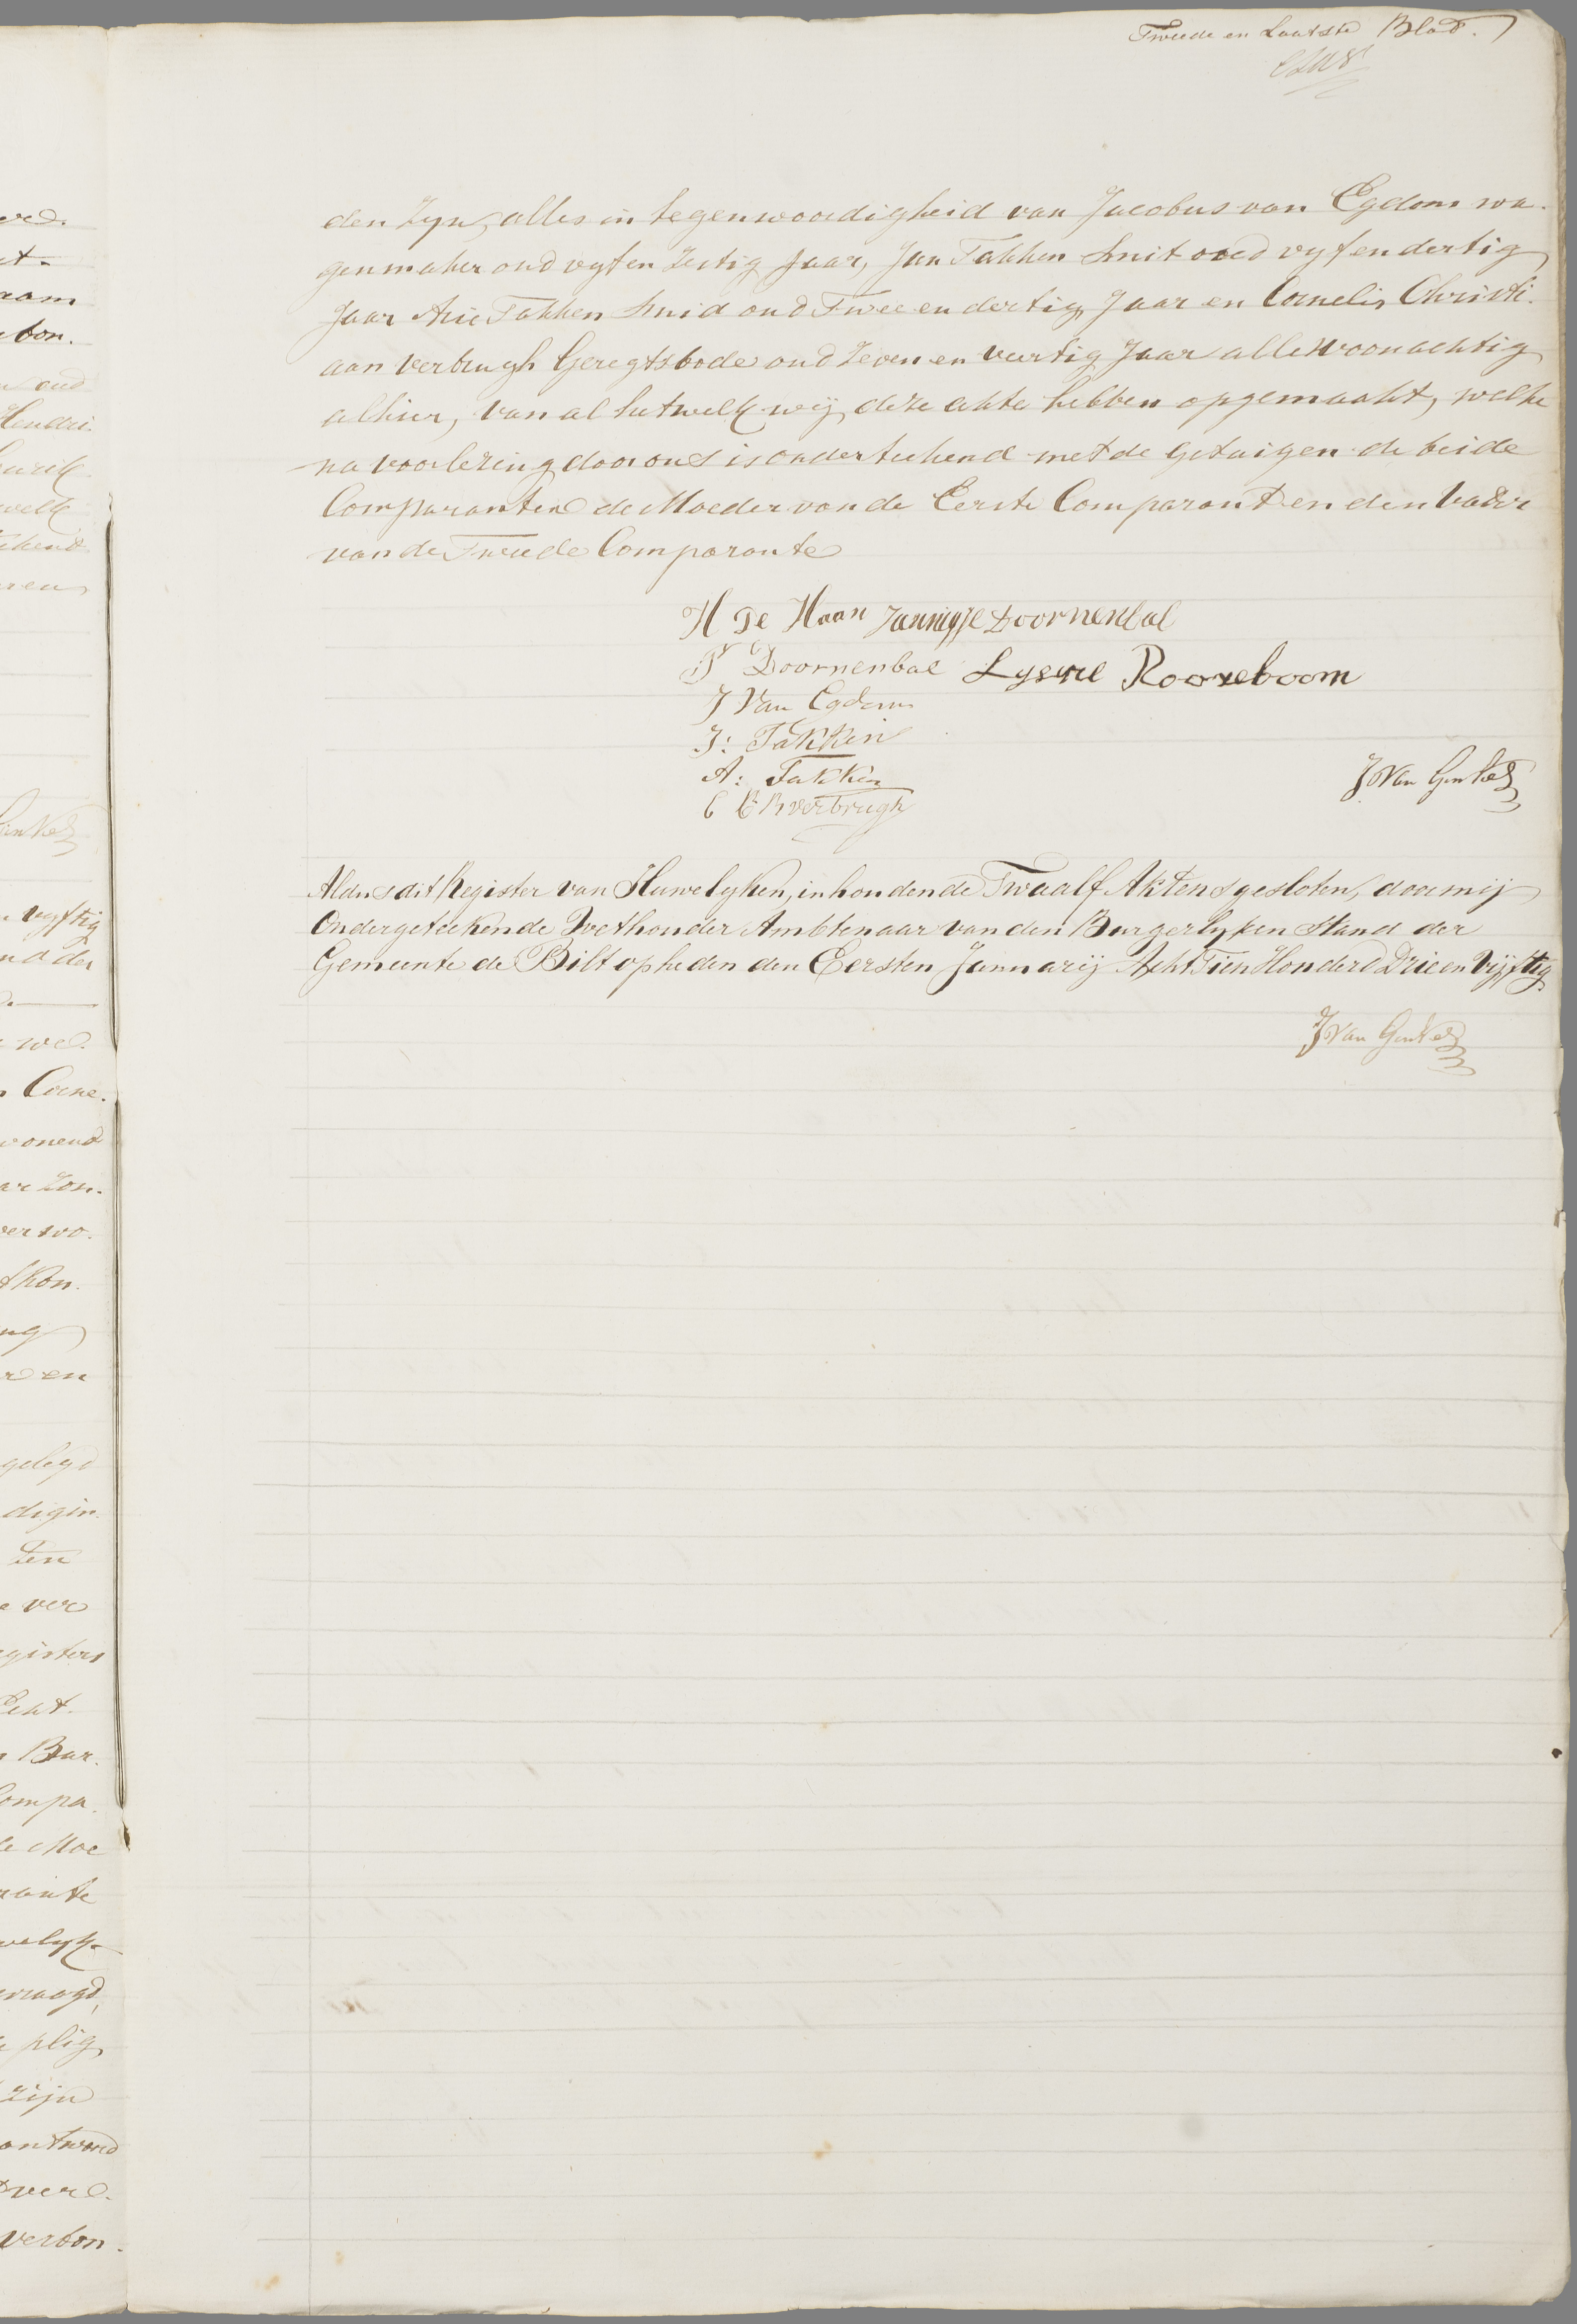 Tweede en Laatste Blad.
den zyn, alles in tegenwoordigheid van Jacobus van Egdom wa-
genmaker oud vyf en zestig Jaar, Jan Takken Smit oud vyf en dertig
Jaar Arie Takken Smid oud Twee en dertig Jaar en Cornelis Christi-
aan Verbrugh Geregtsbode oud Zeven en veertig Jaar alle woonachtig
alhier, van al hetwelk wij deze akte hebben opgemaakt, welke
na voorlezing door ons is onderteekend met de getuigen de beide
Comparanten de Moeder van de Eerste Comparant en den Vader
van de Tweede Comparante
H De Haan Jannigje Doornenbal
P Doornenbal Lysje Rooseboom
J Van Egdom
J: Takken
A: Takken
J Van Ginkel
C C Verbrugh
Aldus dit Register van Huwelyken, inhoudende Twaalf Akten gesloten, door mij
Ondergetekende Wethouder Ambtenaar van den Burgerlyken Stand der
Gemeente de Bilt op heden den Eersten Januarij AchtTien Honderd Drie en Vijftig
J Van Ginkel
verd.
bon.
oud
Hendri-
welk
Ginkel
vyftig
Corne-
wonend
ver wo-
en
gelegd
ten
ver
Bur-
Compa-
de Moe
plig
zijn
antwoord
verbon-